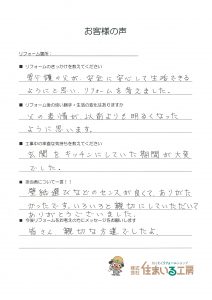 お客様の声
リフォーム箇所：
■ リフォームのきっかけを教えてください
要介護の父が、安全に安心して生活できる
ようにと思い、リフォームを考えました。
■ リフォーム後の使い勝手・生活の変化はありますか
父の表情が、以前よりも明るくなった
ように思います。
■ 工事中の率直な気持ちを教えてください
玄関をキッチンにしていた期間が大変
でした。
■ 担当者について一言！！
壁紙選びなどのセンスが良くて、ありがた
かったです。いろいろと親切にしていただいて
ありがとうございました。
■ 今後リフォームをお考えの方にメッセージをお願いします
皆さん 親切な方達でしたよ。
株式会社
住まいる工房